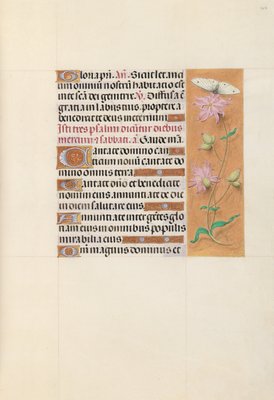 Gloria pri. An. Sicut letan
tium omniū nostrū habitatio est
in te scā dei genitrix. V. Diffusa ē
gratia in labiis tuis. propterea
benedixit te deus in eternum
Isti tres psalmi dicūtur diebus
mercurii & sabbati. an. Gaude ma.
Cantate domino can
ticum novū cantate do
mino omnis terra
Cantate dnō et benedicite
nomini eius annuntiate de die
in diem salutare eius
Annuntiate inter gētes glo
riam eius in omnibus populis
mirabilia eius
Qm̄ magnus dominus et